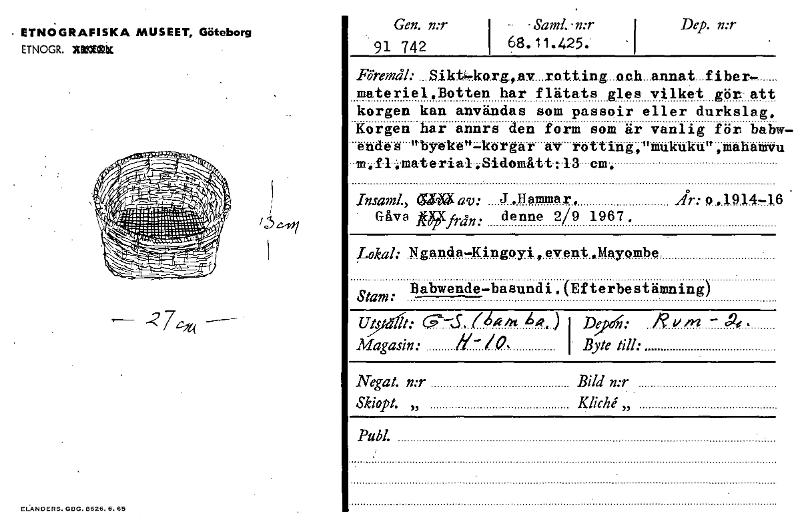 ETNOGRAFISKA MUSEET, Göteborg
ETNOGR.
13 cm
27 cm
ELANDERS. GBG. 8526. 6. 65
Gen. n:r Saml. n:r Dep. n:r
91 742 68.11.425.
Föremål: Sikt-korg,av rotting och annat fiber-
materiel.Botten har flätats gles vilket gör att
korgen kan användas som passoir eller durkslag.
Korgen har annrs den form som är vanlig för babw-
endes "byeke"-korgar av rotting,"mukuku",mahamvu
m.fl.material.Sidomått:13 cm.
Insaml., av: J.Hammar. År: o.1914-16
Gåva från: denne 2/9 1967.
Lokal: Nganda-Kingoyi,event.Mayombe
Stam: Babwende-basundi.(Efterbestämning)
Utställt: G-S. (bamba.) Depon: Rum-2c.
Magasin: H-10. Byte till:
Negat. n:r Bild n:r
Skiopt. „ Kliché „
Publ.